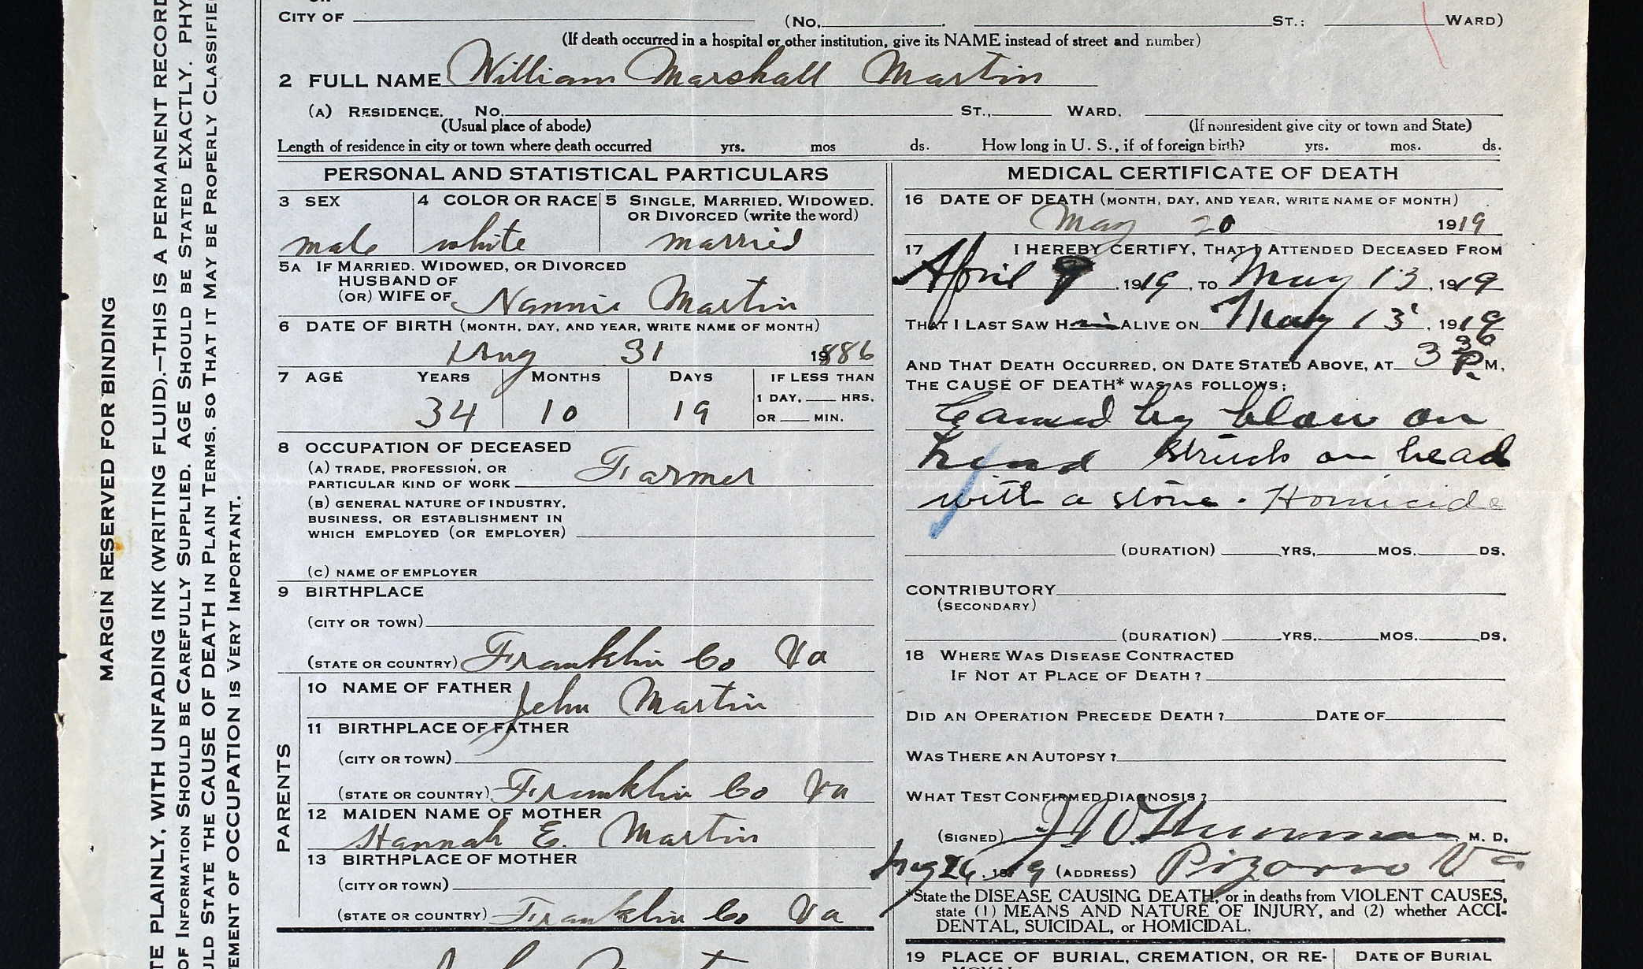 CITY OF (No. ST.: WARD)
(If death occurred in a hospital or other institution, give its NAME instead of street and number)
2 FULL NAME William Marshall Martin
(A) RESIDENCE. No. ST., WARD.
(Usual place of abode) (If nonresident give city or town and State)
Length of residence in city or town where death occurred yrs. mos ds. How long in U. S., if of foreign birth? yrs. mos. ds.
PERSONAL AND STATISTICAL PARTICULARS
3 SEX 4 COLOR OR RACE 5 SINGLE, MARRIED, WIDOWED,
OR DIVORCED (write the word)
male white married
5A IF MARRIED, WIDOWED, OR DIVORCED
HUSBAND OF
(OR) WIFE OF Nannie Martin
6 DATE OF BIRTH (MONTH, DAY, AND YEAR, WRITE NAME OF MONTH)
Aug 31 1886
7 AGE YEARS MONTHS DAYS IF LESS THAN
1 DAY, HRS.
34 10 19 OR MIN.
8 OCCUPATION OF DECEASED
(A) TRADE, PROFESSION, OR
PARTICULAR KIND OF WORK Farmer
(B) GENERAL NATURE OF INDUSTRY,
BUSINESS, OR ESTABLISHMENT IN
WHICH EMPLOYED (OR EMPLOYER)
(C) NAME OF EMPLOYER
9 BIRTHPLACE
(CITY OR TOWN)
(STATE OR COUNTRY) Franklin Co Va
PARENTS
10 NAME OF FATHER John Martin
11 BIRTHPLACE OF FATHER
(CITY OR TOWN)
(STATE OR COUNTRY) Franklin Co Va
12 MAIDEN NAME OF MOTHER
Hannah E. Martin
13 BIRTHPLACE OF MOTHER
(CITY OR TOWN)
(STATE OR COUNTRY) Franklin Co Va
John
MEDICAL CERTIFICATE OF DEATH
16 DATE OF DEATH (MONTH, DAY, AND YEAR, WRITE NAME OF MONTH)
May 20 1919
17 I HEREBY CERTIFY, THAT I ATTENDED DECEASED FROM
April 9, 1919, TO May 13, 1919
THAT I LAST SAW HIM ALIVE ON May 13, 1919
AND THAT DEATH OCCURRED, ON DATE STATED ABOVE, AT 3 30 P.M.
THE CAUSE OF DEATH* WAS AS FOLLOWS:
Caused by blow on
head struck on head
with a stone. Homicide
(DURATION) YRS. MOS. DS.
CONTRIBUTORY
(SECONDARY)
(DURATION) YRS. MOS. DS.
18 WHERE WAS DISEASE CONTRACTED
IF NOT AT PLACE OF DEATH?
DID AN OPERATION PRECEDE DEATH? DATE OF
WAS THERE AN AUTOPSY?
WHAT TEST CONFIRMED DIAGNOSIS?
(SIGNED) M. D.
26, 1919 (ADDRESS) Pizarro Va
*State the DISEASE CAUSING DEATH, or in deaths from VIOLENT CAUSES,
state (1) MEANS AND NATURE OF INJURY, and (2) whether ACCI-
DENTAL, SUICIDAL, or HOMICIDAL.
19 PLACE OF BURIAL, CREMATION, OR RE- DATE OF BURIAL
MARGIN RESERVED FOR BINDING
PLAINLY, WITH UNFADING INK (WRITING FLUID).—THIS IS A PERMANENT RECORD
OF INFORMATION SHOULD BE CAREFULLY SUPPLIED. AGE SHOULD BE STATED EXACTLY.
STATE THE CAUSE OF DEATH IN PLAIN TERMS, SO THAT IT MAY BE PROPERLY CLASSIFIE
OF OCCUPATION IS VERY IMPORTANT.